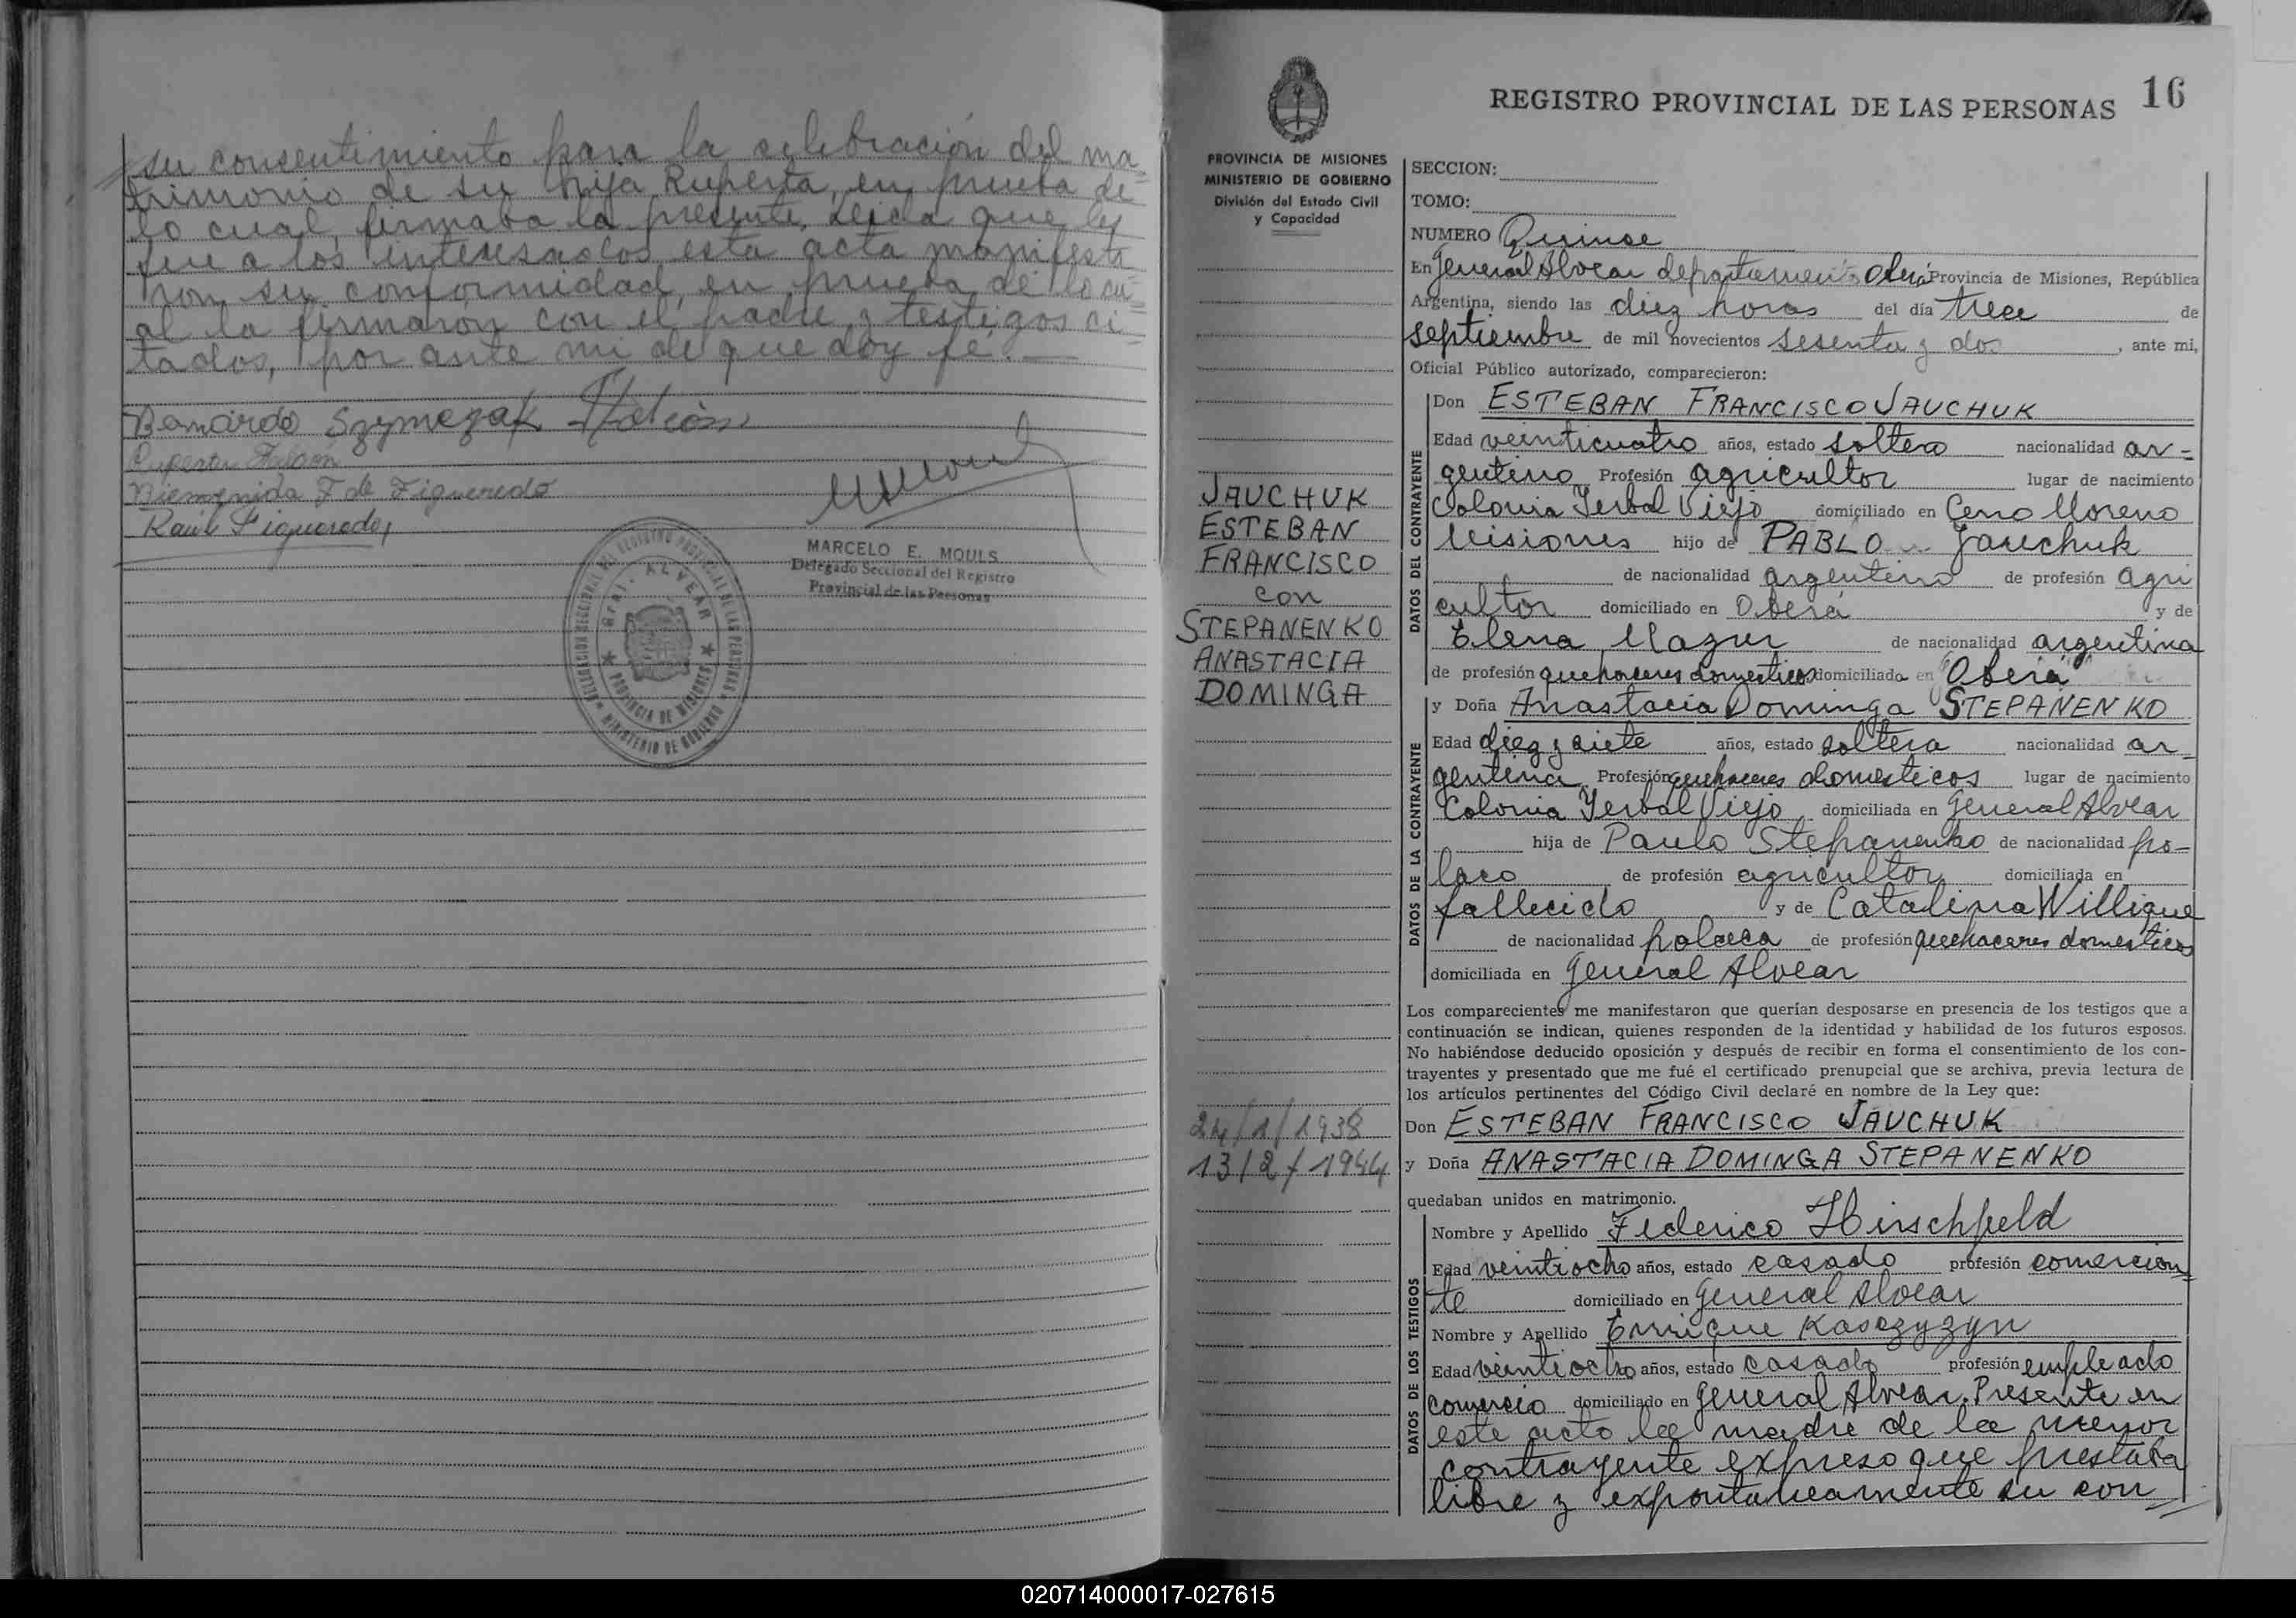 su consentimiento para la celebración del ma
trimonio de su hija Ruperta, en prueba de
lo cual, firmaba la presente, Leida que les
fue a los interesados esta acta manifesta
ron su conformidad, en prueba de lo cu
al la firmaron con el padre y testigos ci
tados, por ante mi de que doy fé.—
Bernardo Szymczak
Ruperta
Bienvenida F de Figueredo
Raúl Figueredo
MARCELO E. MOULS
Delegado Seccional del Registro
Provincial de las Personas
DELEGACION SECCIONAL DEL REGISTRO PROVINCIAL DE LAS PERSONAS
MINISTERIO DE GOBIERNO
GRAL. ALVEAR
PROVINCIA DE MISIONES
16
REGISTRO PROVINCIAL DE LAS PERSONAS
PROVINCIA DE MISIONES
MINISTERIO DE GOBIERNO
División del Estado Civil
y Capacidad
JAUCHUK
ESTEBAN
FRANCISCO
con
STEPANENKO
ANASTACIA
DOMINGA
24/1/1938
13/2/1944
SECCION:
TOMO:
NUMERO Quinse
En General Alvear departamento Oberá Provincia de Misiones, República
Argentina, siendo las diez horas del día trece de
septiembre de mil novecientos sesenta y dos, ante mi,
Oficial Público autorizado, comparecieron:
DATOS DEL CONTRAYENTE
Don ESTEBAN FRANCISCO JAUCHUK
Edad veinticuatro años, estado soltero nacionalidad ar-
gentino Profesión agricultor lugar de nacimiento
Colonia Yerbal Viejo domiciliado en Cerro Moreno
Misiones hijo de PABLO Jauchuk
de nacionalidad argentino de profesión agri
cultor domiciliado en Oberá y de
Elena Mazur de nacionalidad argentina
de profesión quehaceres domesticos domiciliada en Oberá
DATOS DE LA CONTRAYENTE
y Doña Anastacia Dominga STEPANENKO
Edad diez y siete años, estado soltera nacionalidad ar
gentina Profesión quehaceres domesticos lugar de nacimiento
Colonia Yerbal Viejo domiciliada en General Alvear
hija de Paulo Stepanenko de nacionalidad po-
laco de profesión agricultor domiciliada en
fallecido y de Catalina Willique
de nacionalidad polaca de profesión quehaceres domesticos
domiciliada en General Alvear
Los comparecientes me manifestaron que querían desposarse en presencia de los testigos que a
continuación se indican, quienes responden de la identidad y habilidad de los futuros esposos.
No habiéndose deducido oposición y después de recibir en forma el consentimiento de los con-
trayentes y presentado que me fué el certificado prenupcial que se archiva, previa lectura de
los artículos pertinentes del Código Civil declaré en nombre de la Ley que:
Don ESTEBAN FRANCISCO JAUCHUK
y Doña ANASTACIA DOMINGA STEPANENKO
quedaban unidos en matrimonio.
DATOS DE LOS TESTIGOS
Nombre y Apellido Federico Hirschfeld
Edad veintiocho años, estado casado profesión comercian
te domiciliado en General Alvear
Nombre y Apellido Enrique Kasczyzyn
Edad veintiocho años, estado casado profesión empleado
comercio domiciliado en General Alvear. Presente en
este acto la madre de la menor
contrayente expreso que prestaba
libre y expontaneamente su con
020714000017-027615